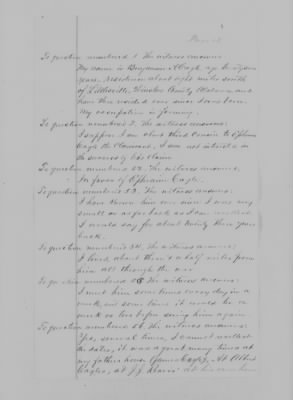 To question numbered 1 the witness answers:
My name is Benjamin F. Cagle age 40 years
years, residence about eight miles south
of Littleville, Winston County Alabama and
have there resided ever since I was born.
My occupation is farming.
To question numbered 2. the witness answers:
I suppose I am about third Cousin to Ephraim
Cagle the Claimant, I am not interested in
the success of his Claim
To question numbered 52. the witness answers:
In favor of Ephraim Cagle.
To question numbered 53. the witness answers:
I have known him ever since I was very
small or as far back as I can recollect
I would say for about twenty three years
back.
To question numbered 54. the witness answers:
I lived about three & a half miles from
him all through the war
To question numbered 55 the witness answers:
I met him some times every day in a
week, and some times it would be a
week or two before seeing him again
To question numbered 56. the witness answers:
Yes, several times, I cannot recollect
the dates, it was a great many times at
my fathers house James Cagle, At Albert
Cagles, at J. J. Davis' at his own house